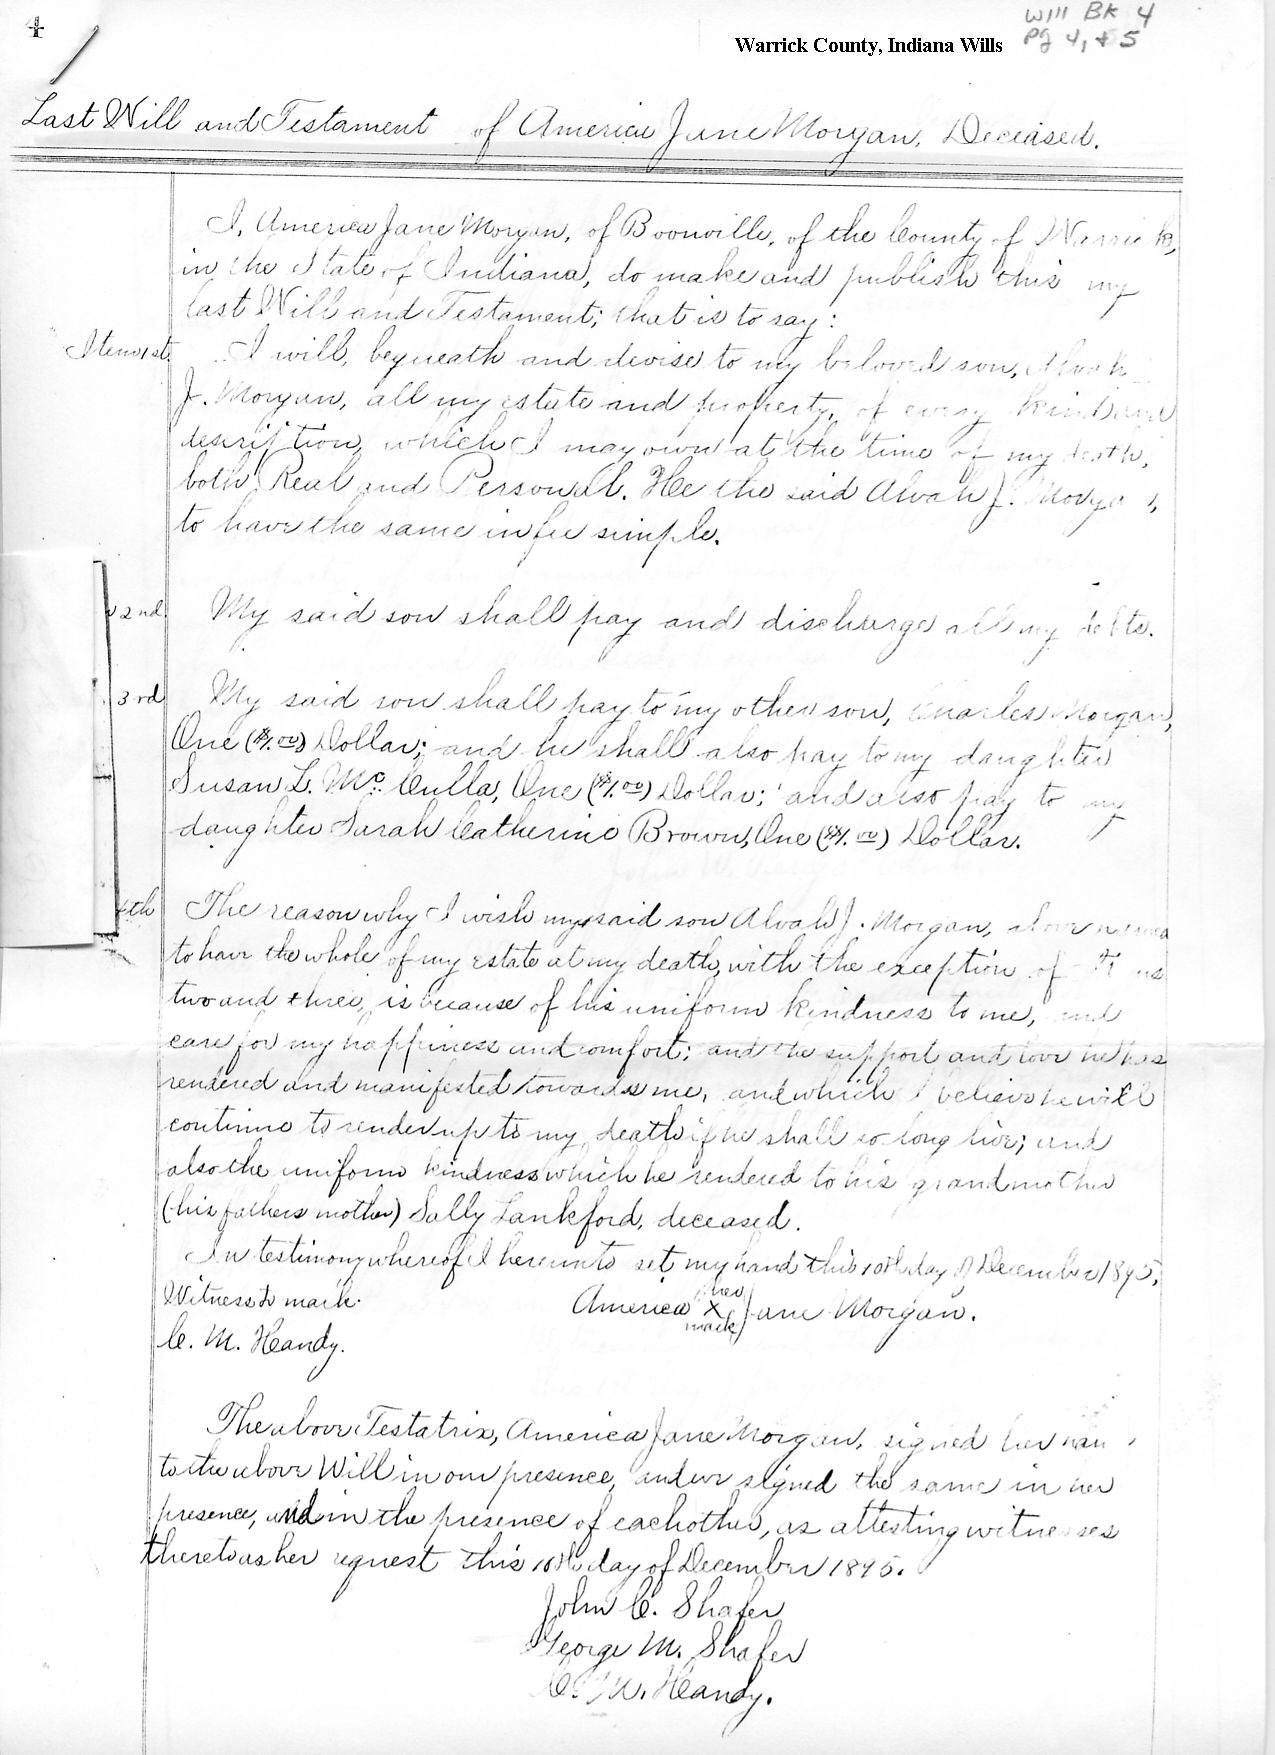 4
Will Bk 4
Pg 4, + 5
Warrick County, Indiana Wills
Last Will and Testament of America Jane Morgan, Deceased.
I, America Jane Morgan, of Boonville, of the County of Warrick,
in the State of Indiana, do make and publish this my
last Will and Testament; that is to say:
Item 1st. I will, bequeath and devise to my beloved son, Alvah
J. Morgan, all my estate and property, of every kind and
description, which I may own at the time of my death,
both Real and Personal. He the said Alvah J. Morgan,
to have the same in fee simple.
2nd My said son shall pay and discharge all my debts.
3rd My said son shall pay to my other son, Charles Morgan,
One ($1.00) Dollar; and he shall also pay to my daughter
Susan L. McCulla, One ($1.00) Dollar; and also pay to my
daughter Sarah Catherine Brown, One ($1.00) Dollar.
4th The reason why I wish my said son Alvah J. Morgan, above named
to have the whole of my estate at my death, with the exception of Items
two and three, is because of his uniform kindness to me, and
care for my happiness and comfort; and the support and love he has
rendered and manifested towards me, and which I believe he will
continue to render up to my death if he shall so long live; and
also the uniform kindness which he rendered to his grandmother
(his fathers mother) Sally Lankford, deceased.
In testimony whereof I hereunto set my hand this 10th day of December 1895.
Witness to mark. America her X mark Jane Morgan.
C. M. Handy.
The above Testatrix, America Jane Morgan, signed her nam
to the above Will in our presence, and we signed the same in her
presence, and in the presence of each other, as attesting witnesses
thereto as her request this 10th day of December 1895.
John C. Shafer
George M. Shafer
C. M. Handy.